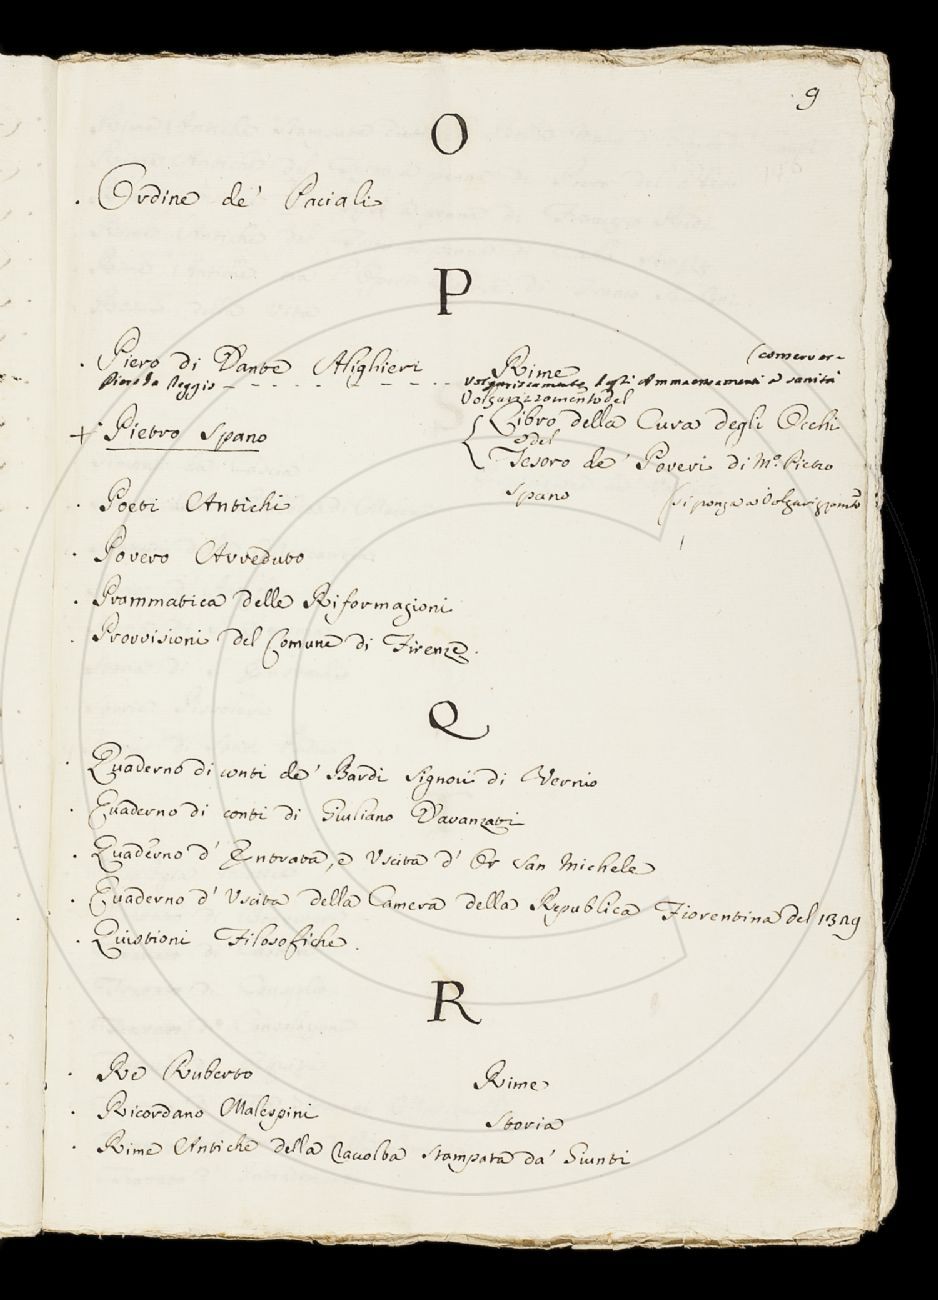 9
O
. Ordine de' Paciali
P
. Piero di Dante Alighieri Rime
Piero da Reggio - - - - - - - - - Volgarizzamento degli Ammaestramenti a (conserver-
sanità
Volgarizzamento del
+ Pietro Spano { Libro della Cura degli Occhi
e del
Tesoro de' Poveri di M.o Pietro
Spano (si ponga a Volgarizzam.to
. Poeti Antichi
. Povero Avveduto
. Prammatica delle Riformagioni
. Provvisioni del Comune di Firenze.
Q
. Quaderno di conti de' Bardi Signori di Vernio
. Quaderno di conti di Giuliano Davanzati
. Quaderno d' Entrata, e Uscita d' Or San Michele
. Quaderno d' Uscita della Camera della Republica Fiorentina del 1329
. Quistioni Filosofiche.
R
. Re Ruberto Rime
. Ricordano Malespini Storia
. Rime Antiche della Racolta stampata da' Giunti